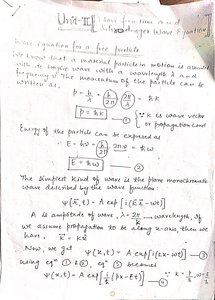 Unit-II Wave function and
Schrodinger Wave Equation
Wave equation for a free particle
We know that a material particle in motion is associated
with de Broglie wave with a wavelength λ and
frequency υ. The momentum of the particle can be
written as:
p = h/λ = (h/2π)(2π/λ) = ħk
p = ħk — ① ∵ k is wave vector
or propagation const
Energy of the particle can be expressed as
E = hυ = h/2π 2πυ = ħω
E = ħω — ②
The simplest kind of wave is the plane monochromatic
wave described by the wave function:
ψ(x̄,t) = A exp[i(k̄x̄ - ωt)]
A is amplitude of wave, λ = 2π/k → wavelength, if
we assume propagation to be along x-axis, then we
have, k̄ = kx̂
Now, we get ψ(x,t) = A exp[i(kx - ωt)] — ③
using eqⁿ ① & ②, eqⁿ ③ becomes
ψ(x,t) = A exp[i/ħ (px - Et)] — ④ ∵ k = p/ħ, ω = E/ħ